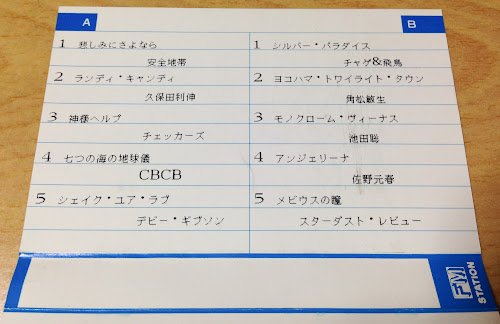 A
1 悲しみにさよなら
安全地帯
2 ランディ・キャンディ
久保田利伸
3 神様ヘルプ
チェッカーズ
4 七つの海の地球儀
CBCB
5 シェイク・ユア・ラブ
デビー・ギブソン
B
1 シルバー・パラダイス
チャゲ&飛鳥
2 ヨコハマ・トワイライト・タウン
角松敏生
3 モノクローム・ヴィーナス
池田聡
4 アンジェリーナ
佐野元春
5 メビウスの瞳
スターダスト・レビュー
FM STATION